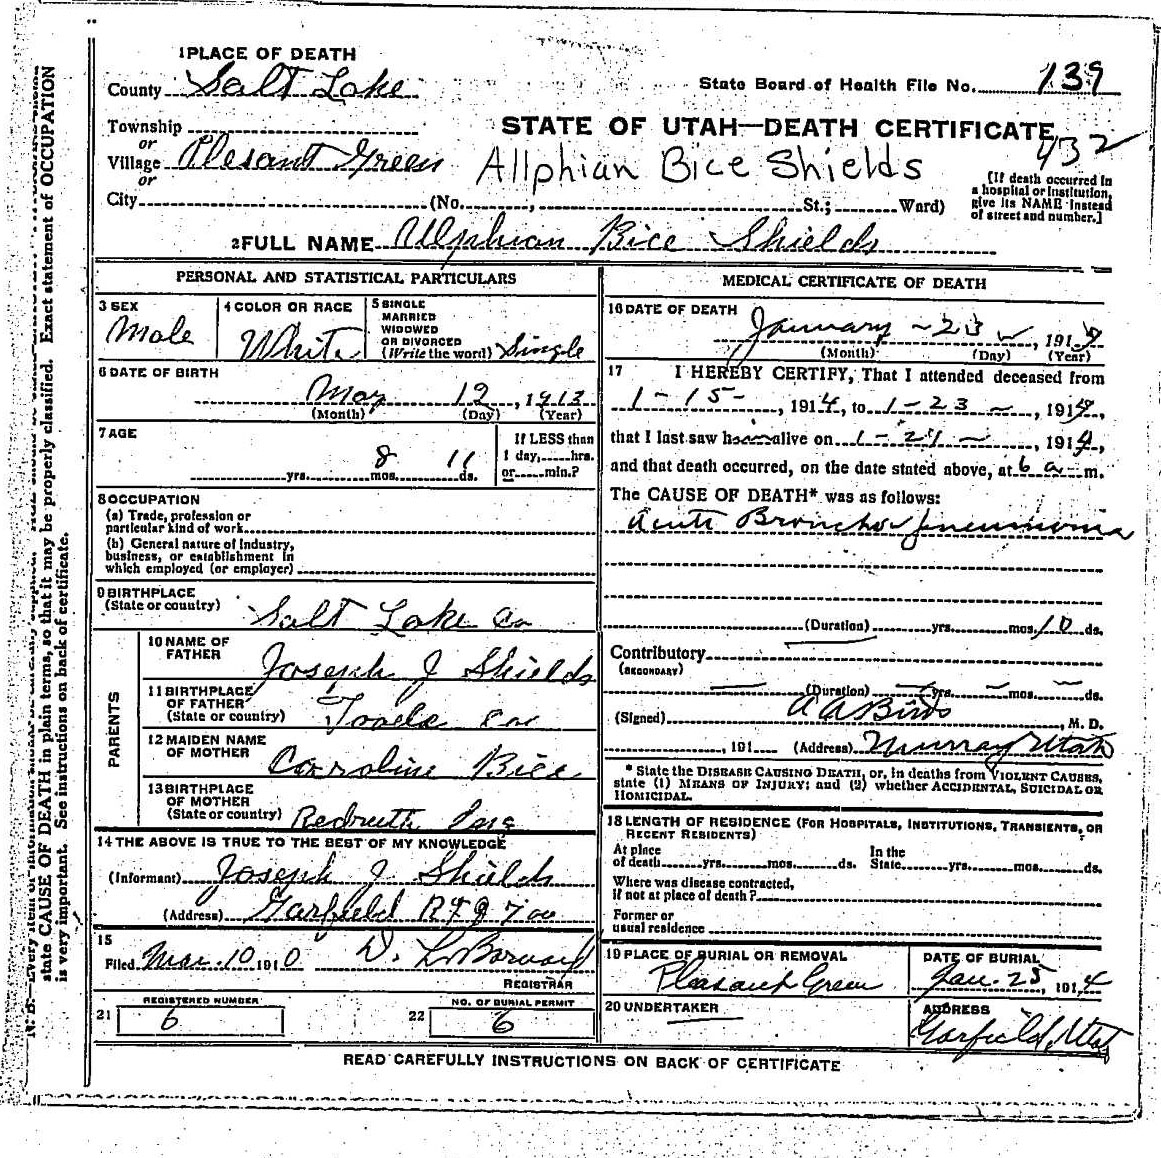 1 PLACE OF DEATH
County Salt Lake
State Board of Health File No. 139
Township
or
Village Plesant Green
or
City (No. , St.; Ward)
STATE OF UTAH—DEATH CERTIFICATE
432
Allphian Bice Shields
[If death occurred in
a hospital or institution,
give its NAME instead
of street and number.]
2 FULL NAME Alphian Bice Shields
PERSONAL AND STATISTICAL PARTICULARS
3 SEX
Male
4 COLOR OR RACE
White
5 SINGLE
MARRIED
WIDOWED
OR DIVORCED
(Write the word) Single
6 DATE OF BIRTH
May 12, 1913
(Month) (Day) (Year)
7 AGE
yrs. 8 mos. 11 ds.
If LESS than
1 day, hrs.
or min.?
8 OCCUPATION
(a) Trade, profession or
particular kind of work
(b) General nature of Industry,
business, or establishment in
which employed (or employer)
9 BIRTHPLACE
(State or country) Salt Lake Co
PARENTS
10 NAME OF
FATHER Joseph J Shields
11 BIRTHPLACE
OF FATHER
(State or country) Tooele Co
12 MAIDEN NAME
OF MOTHER Corroline Bice
13 BIRTHPLACE
OF MOTHER
(State or country) Redruth
14 THE ABOVE IS TRUE TO THE BEST OF MY KNOWLEDGE
(Informant) Joseph J Shields
(Address) Garfield
15
Filed Mar. 10 1910 D. L.
REGISTRAR
REGISTERED NUMBER
21 6
NO. OF BURIAL PERMIT
22 6
MEDICAL CERTIFICATE OF DEATH
16 DATE OF DEATH
January 23, 1914
(Month) (Day) (Year)
17 I HEREBY CERTIFY, That I attended deceased from
1-15-, 1914, to 1-23-, 1914,
that I last saw him alive on 1-21-, 1914,
and that death occurred, on the date stated above, at 6 a m.
The CAUSE OF DEATH* was as follows:
Acute Broncho pneumonia
(Duration) yrs. mos. 10 ds.
Contributory
(SECONDARY)
(Duration) — yrs. — mos. — ds.
(Signed) A A Bird, M. D.
, 191 (Address) Murray Utah
* State the DISEASE CAUSING DEATH, or, in deaths from VIOLENT CAUSES,
state (1) MEANS OF INJURY; and (2) whether ACCIDENTAL, SUICIDAL OR
HOMICIDAL.
18 LENGTH OF RESIDENCE (FOR HOSPITALS, INSTITUTIONS, TRANSIENTS, OR
RECENT RESIDENTS)
At place
of death yrs. mos. ds.
In the
State yrs. mos. ds.
Where was disease contracted,
if not at place of death?
Former or
usual residence
19 PLACE OF BURIAL OR REMOVAL
Pleasant Green
DATE OF BURIAL
Jan. 25, 1914
20 UNDERTAKER
ADDRESS
Garfield, Utah
READ CAREFULLY INSTRUCTIONS ON BACK OF CERTIFICATE
state CAUSE OF DEATH in plain terms, so that it may be properly classified. Exact statement of OCCUPATION
is very important. See instructions on back of certificate.